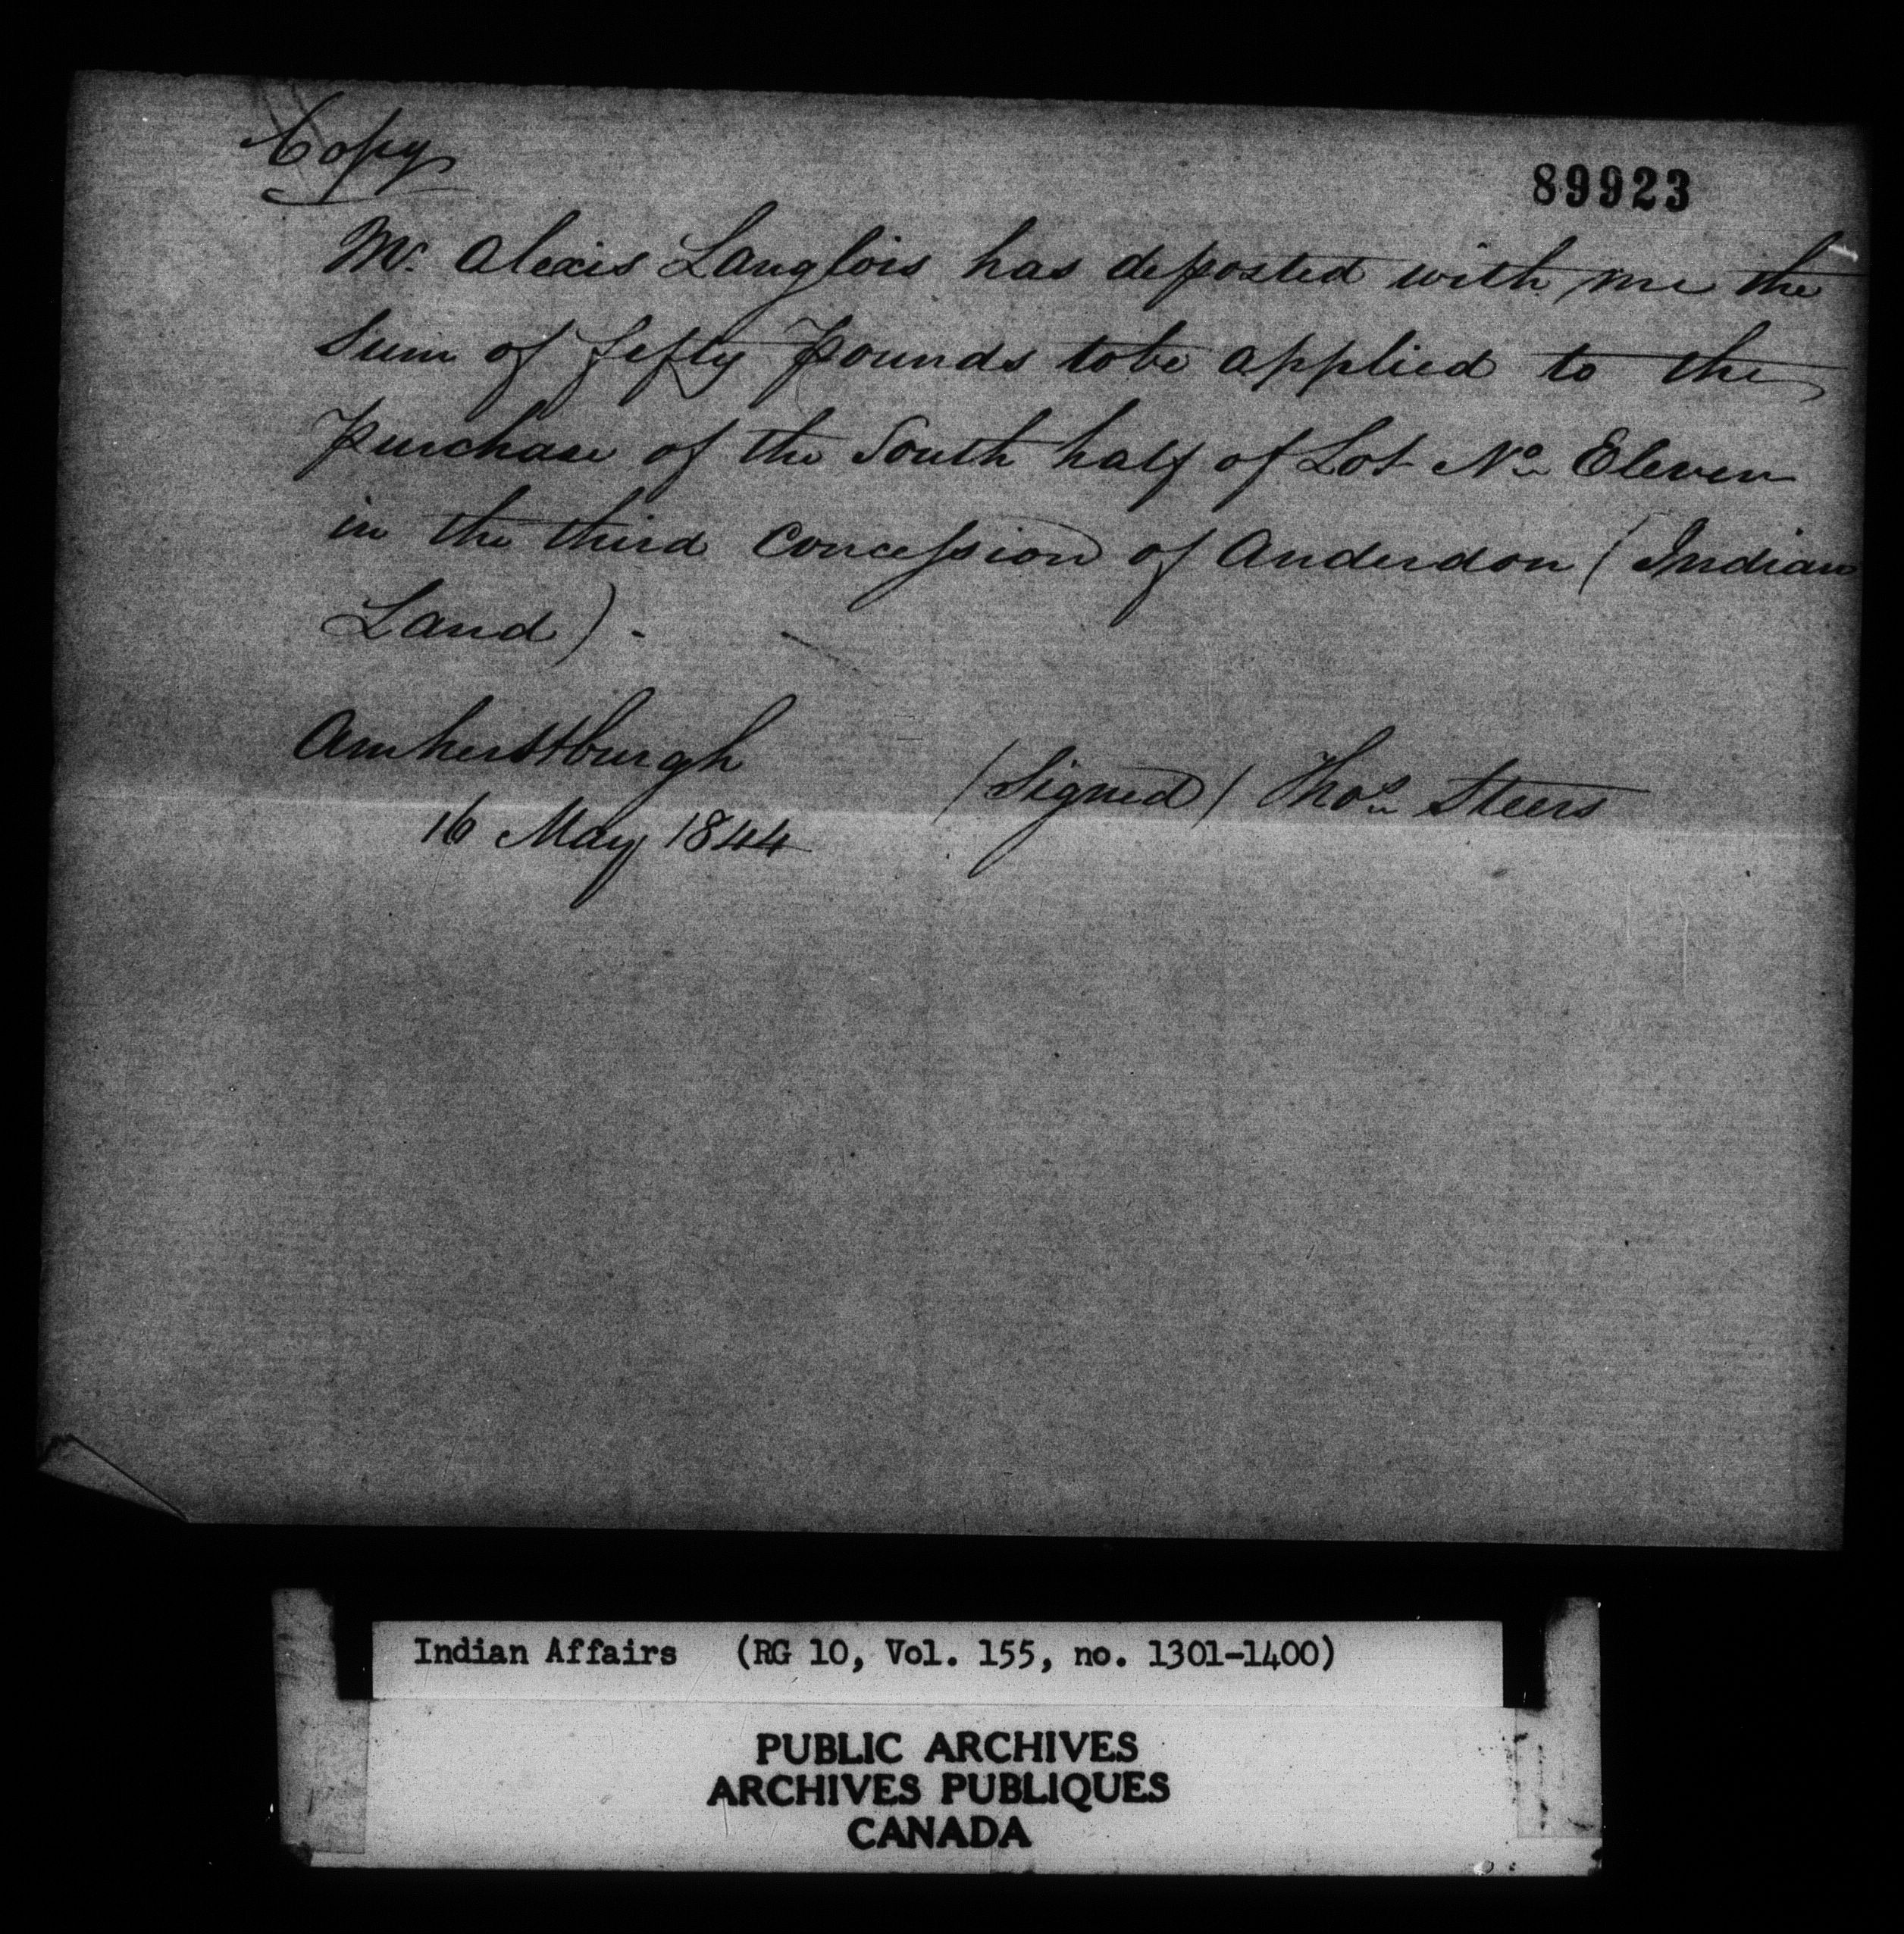 Copy
89923
Mr. Alexis Langlois has deposted with me the
Sum of fifty Pounds tobe applied to the
purchase of the South half of Lot No Eleven
in the third Concession of Anderdon (Indian
Land).
Amherstburgh
(Signed) Thos Steers
16 May 1844
Indian Affairs (RG 10, Vol. 155, no. 1301-1400)
PUBLIC ARCHIVES
ARCHIVES PUBLIQUES
CANADA